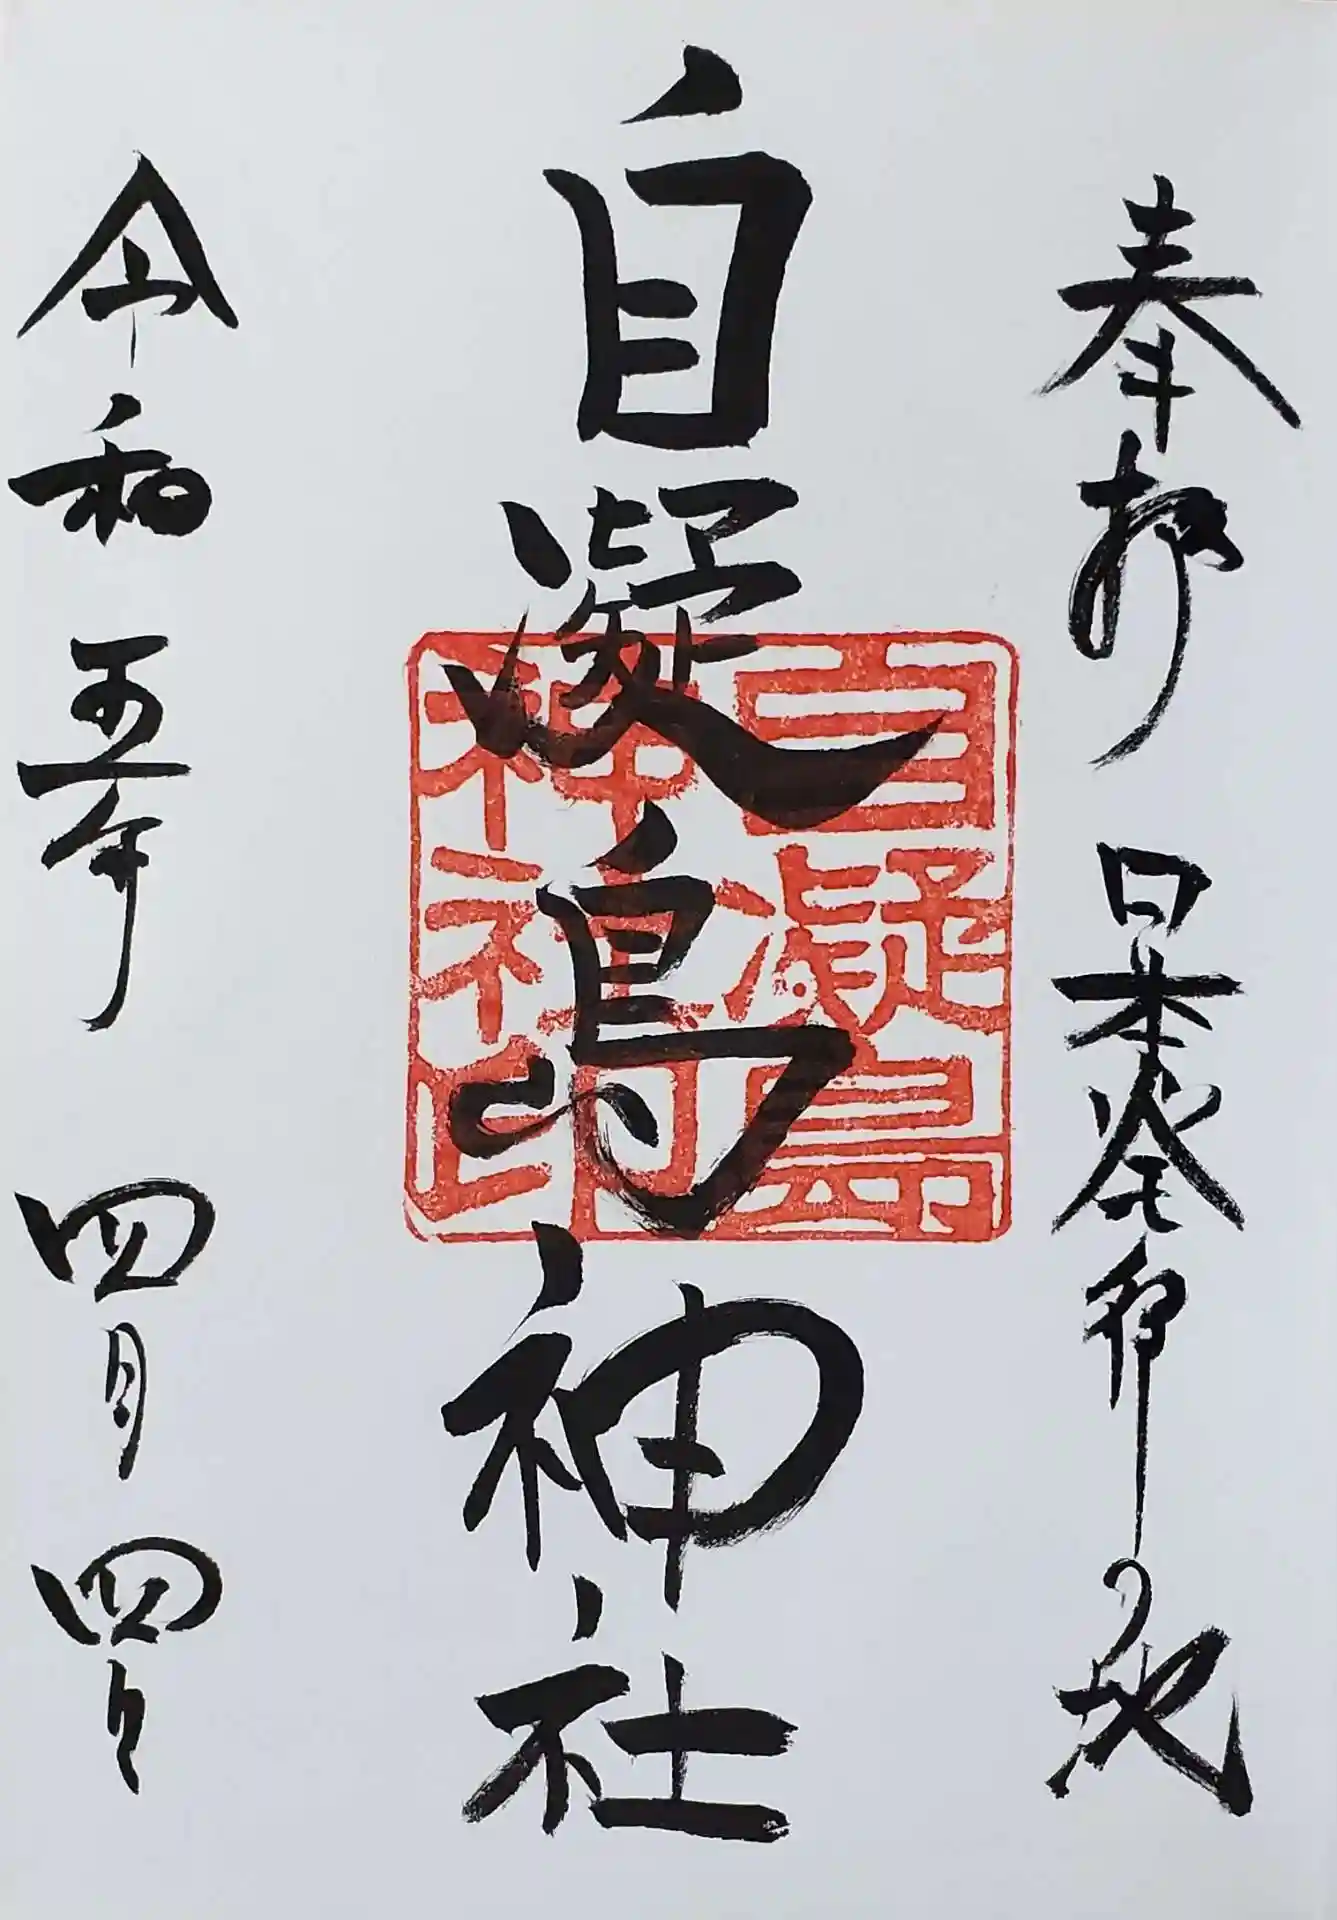 奉拝 日本発祥の地
自凝島神社
自凝島
神社印
令和五年 四月四日